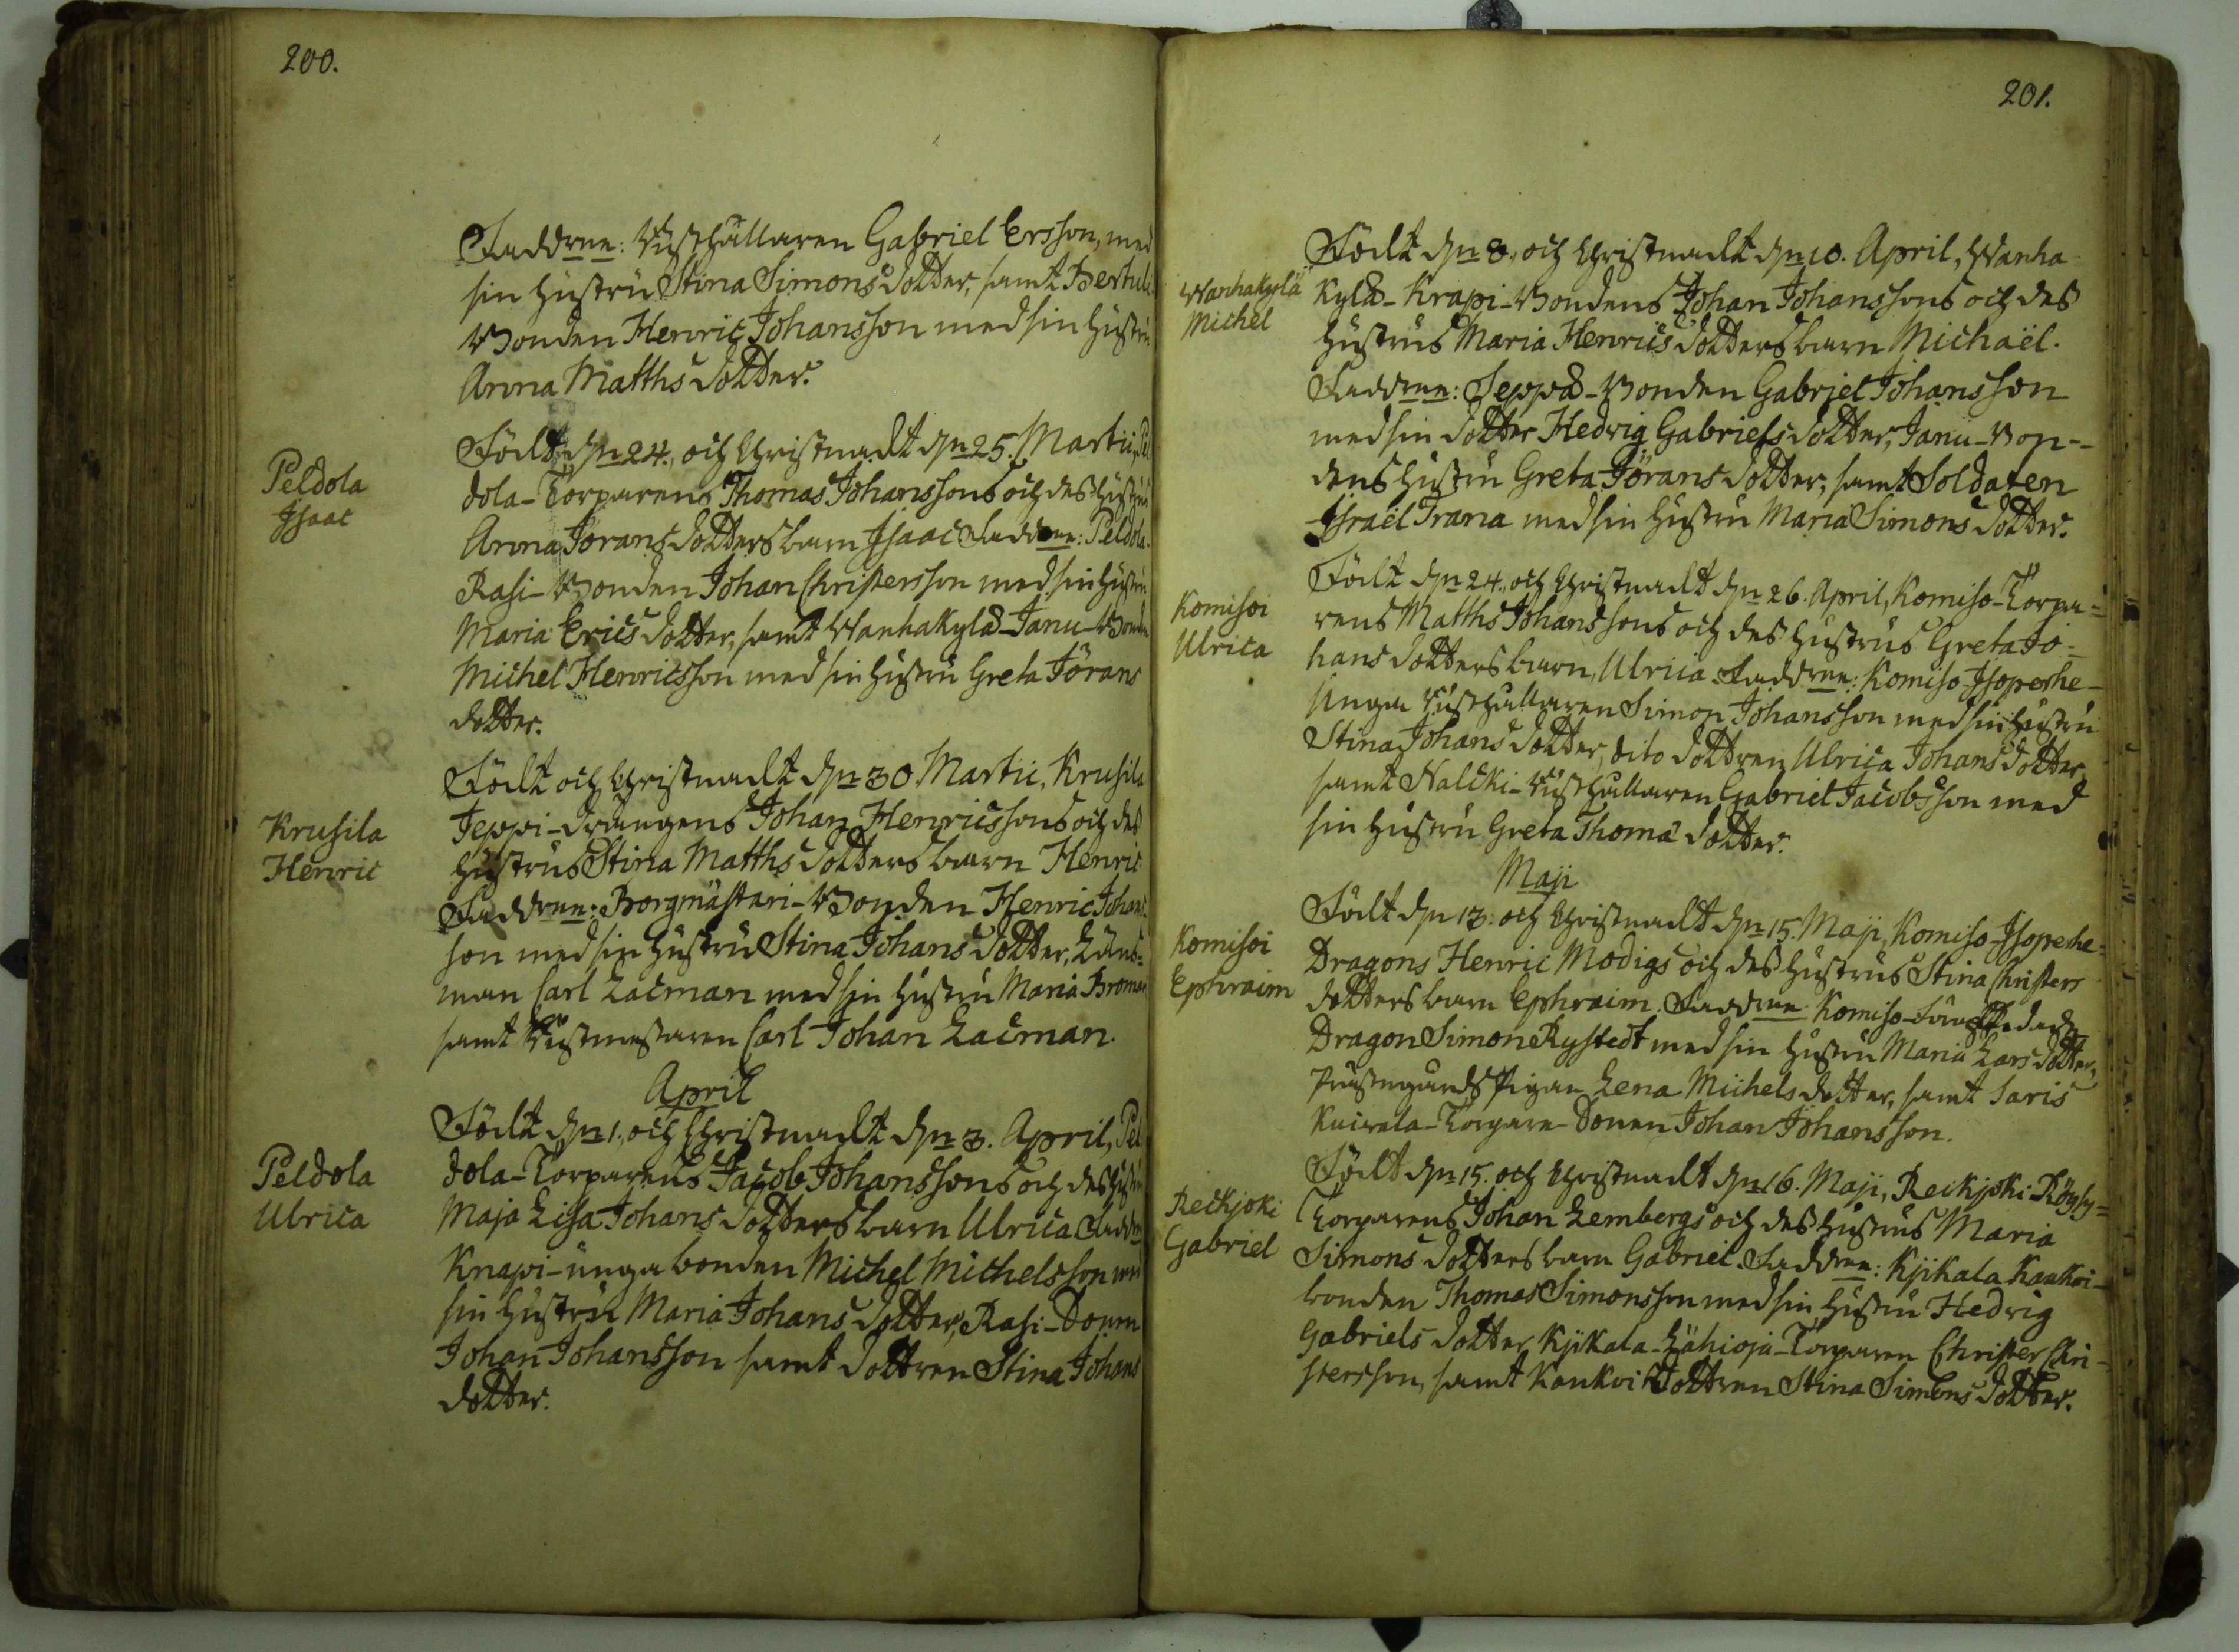 200.
Faddrne: Rusthållaren Gabriel Ersson, med
sin hustru Stina Simonsdotter, samt Bertuli
Bonden Henric Johansson med sin hustru
Anna Matthsdotter.
Peldola
Isaac
Födt dn 24, och Christnadt dn 25. Martii, Pel
dola-Torparens Thomas Johanssons och des hustrus
Anna Joransdotters barn Isaac Faddrne: Peldola-
Rasi-Bonden Johan Christersson med sin hustru
Maria Ericsdotter, samt Wanhakylä-Janu-Bonden
Michel Henricsson med sin hustru Greta Jörans
dotter.
Krusila
Henric
Födt och Christnadt dn 30 Martii, Krusila
Jeppi-drängens Johan Henricssons och des
hustrus Stina Matthsdotters barn Henric
Faddrne: Borgmästari-Bonden Henric Johans-
son med sin hustru Stina Johansdotter, Läns-
man Carl Zacman med sin hustru Maria Broman
samt Rustmästaren Carl Johan Zacman.
April
Peldola
Ulrica
Födt dn 1, och Christnadt dn 3. April, Pel
dola-Torparens Jacob Johanssons och des hustrus
Maja Lisa Johansdotters barn Ulrica Faddrne
Knapi-unga bonden Michel Michelsson med
sin hustru Maria Johansdotter, Rasi-Sonen
Johan Johansson samt dottren Stina Johans
dotter.
201.
Wanhakylä
Michel
Födt dn 8, och Christnadt dn 10. April, Wanha
kylä-Krapi-Bondens Johan Johanssons och des
hustrus Maria Henricsdotters barn Michaël.
Faddrne: Seppä-Bonden Gabriel Johansson
med sin dotter Hedvig Gabrielsdotter, Janu-Bon-
dens hustru Greta Jöransdotter, samt Soldaten
Israël Trana med sin hustru Maria Simonsdotter.
Komisoi
Ulrica
Födt dn 24, och Christnadt dn 26. April, Komiso-Torpa=
rens Matths Johanssons och des hustrus Greta Jo=
hansdotters barn, Ulrica. Faddrne: Komiso-Isoperhe-
Unga Rusthållaren Simon Johansson med sin hustru
Stina Johansdotter, dito dottren Ulrica Johansdotter
samt Nalcki-Rusthållaren Gabriel Jacobsson med
sin hustru Greta Thomädotter.
Maji
Komisoi
Ephraim
Födt dn 13. och Christnadt dn 15. Maji, Komiso-Isoperhe=
Dragons Henric Modigs och des hustrus Stina Christers
dotters barn Ephraim. Faddrne: Komiso-
Dragon Simon Rystedt med sin hustru Maria Larsdotter,
Prästgårds Pigan Lena Michelsdotter, samt Saris
Kuivala-Torpare-Sonen Johan Johansson.
Reckjoki
Gabriel
Födt dn 15. och Christnadt dn 16. Maji, Reckjoki-Köyly=
Torparens Johan Lembergs och des hustrus Maria
Simonsdotters barn Gabriel. Faddrne: Kjikala Kankoi-
bonden Thomas Simonsson med sin hustru Hedvig
Gabriels dotter Kjikala-Lähioja-Torparen Christer Chri-
stersson, samt Kankoi dottren Stina Simonsdotter.